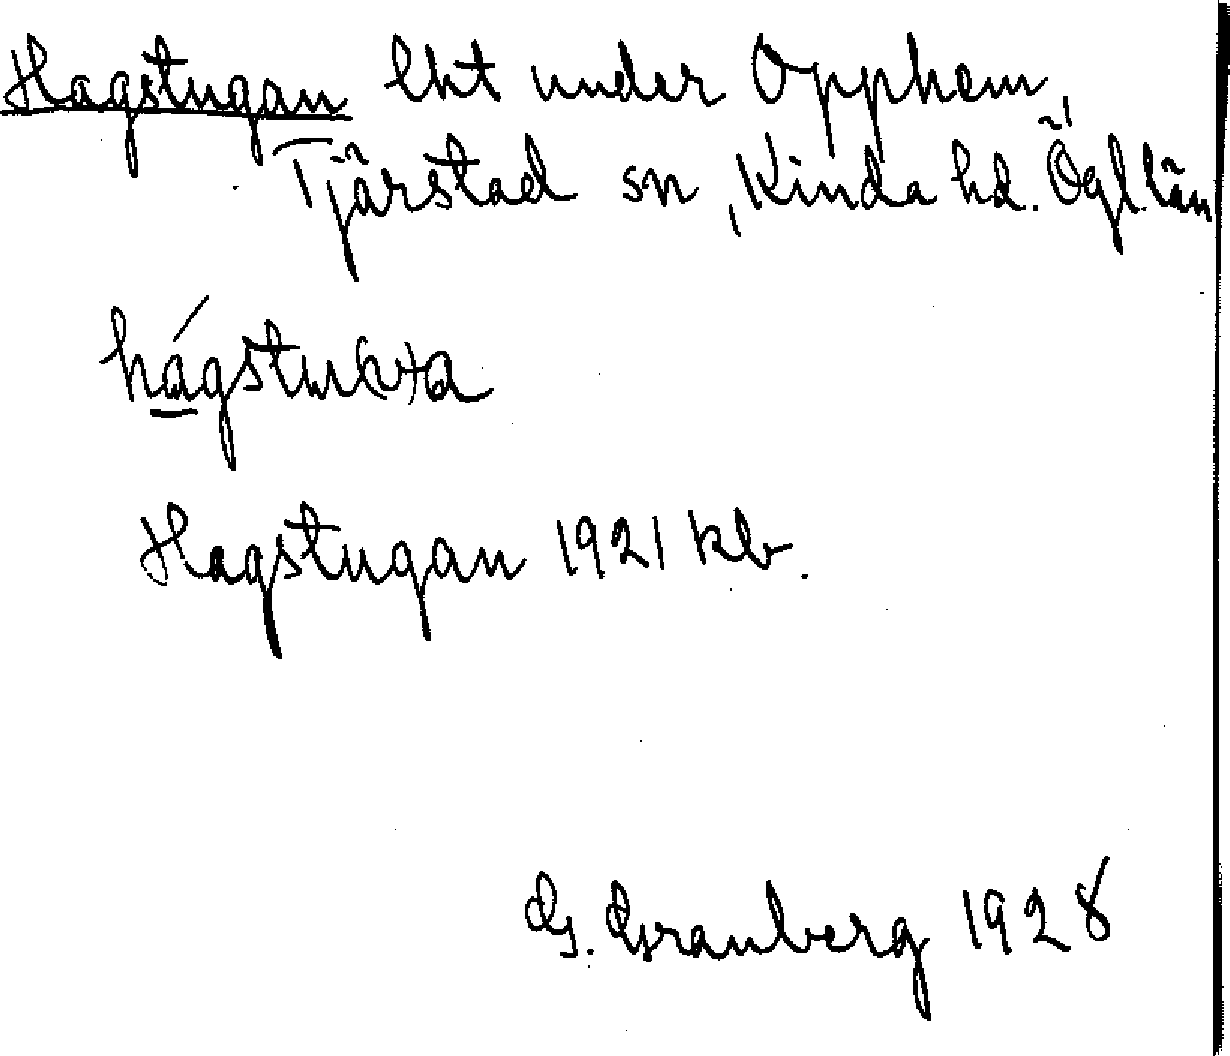 Hagstugan lht under Opphem,
Tjärstad sn, Kinda hd. Ögl. län
Hagstugan 1921 kb.
G. Granberg 1928